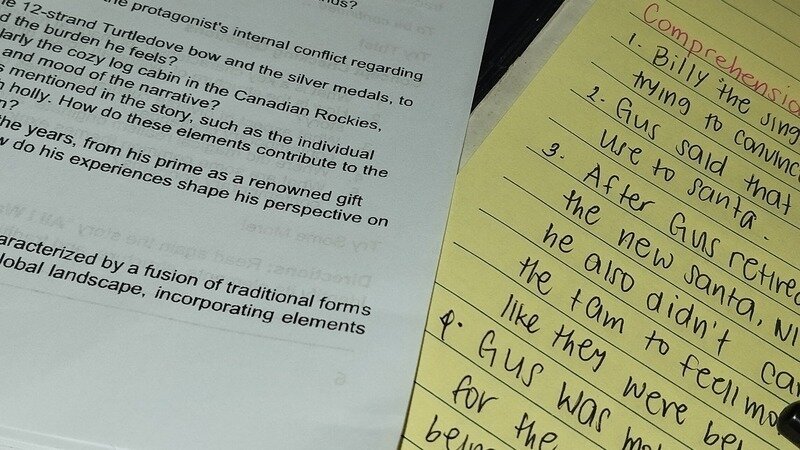 the protagonist's internal conflict regarding
12-strand Turtledove bow and the silver medals, to
the burden he feels?
the cozy log cabin in the Canadian Rockies,
and mood of the narrative?
mentioned in the story, such as the individual
holly. How do these elements contribute to the
the years, from his prime as a renowned gift
do his experiences shape his perspective on
characterized by a fusion of traditional forms
global landscape, incorporating elements
Try Some More!
6
Comprehension
1. Billy the
trying to
2. Gus said that
use to santa.
3. After Gus
the new santa,
he also didn't
the tam to feel
like they were
4. Gus was
for the